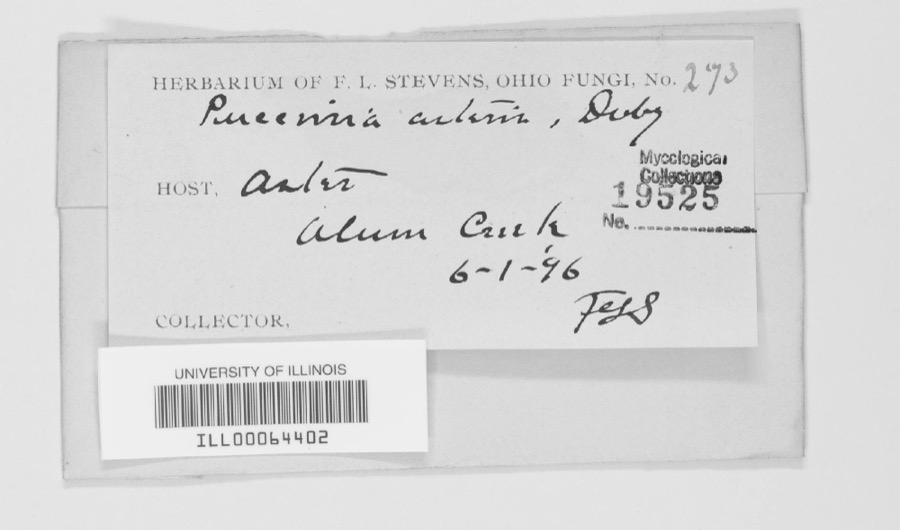 HERBARIUM OF F. L. STEVENS, OHIO FUNGI, No. 273
Puccinia asteris, Duby
Mycological
Collections
19525
No.
HOST, Aster
Alum Creek
6-1-'96
FLS
COLLECTOR,
UNIVERSITY OF ILLINOIS
ILL00064402